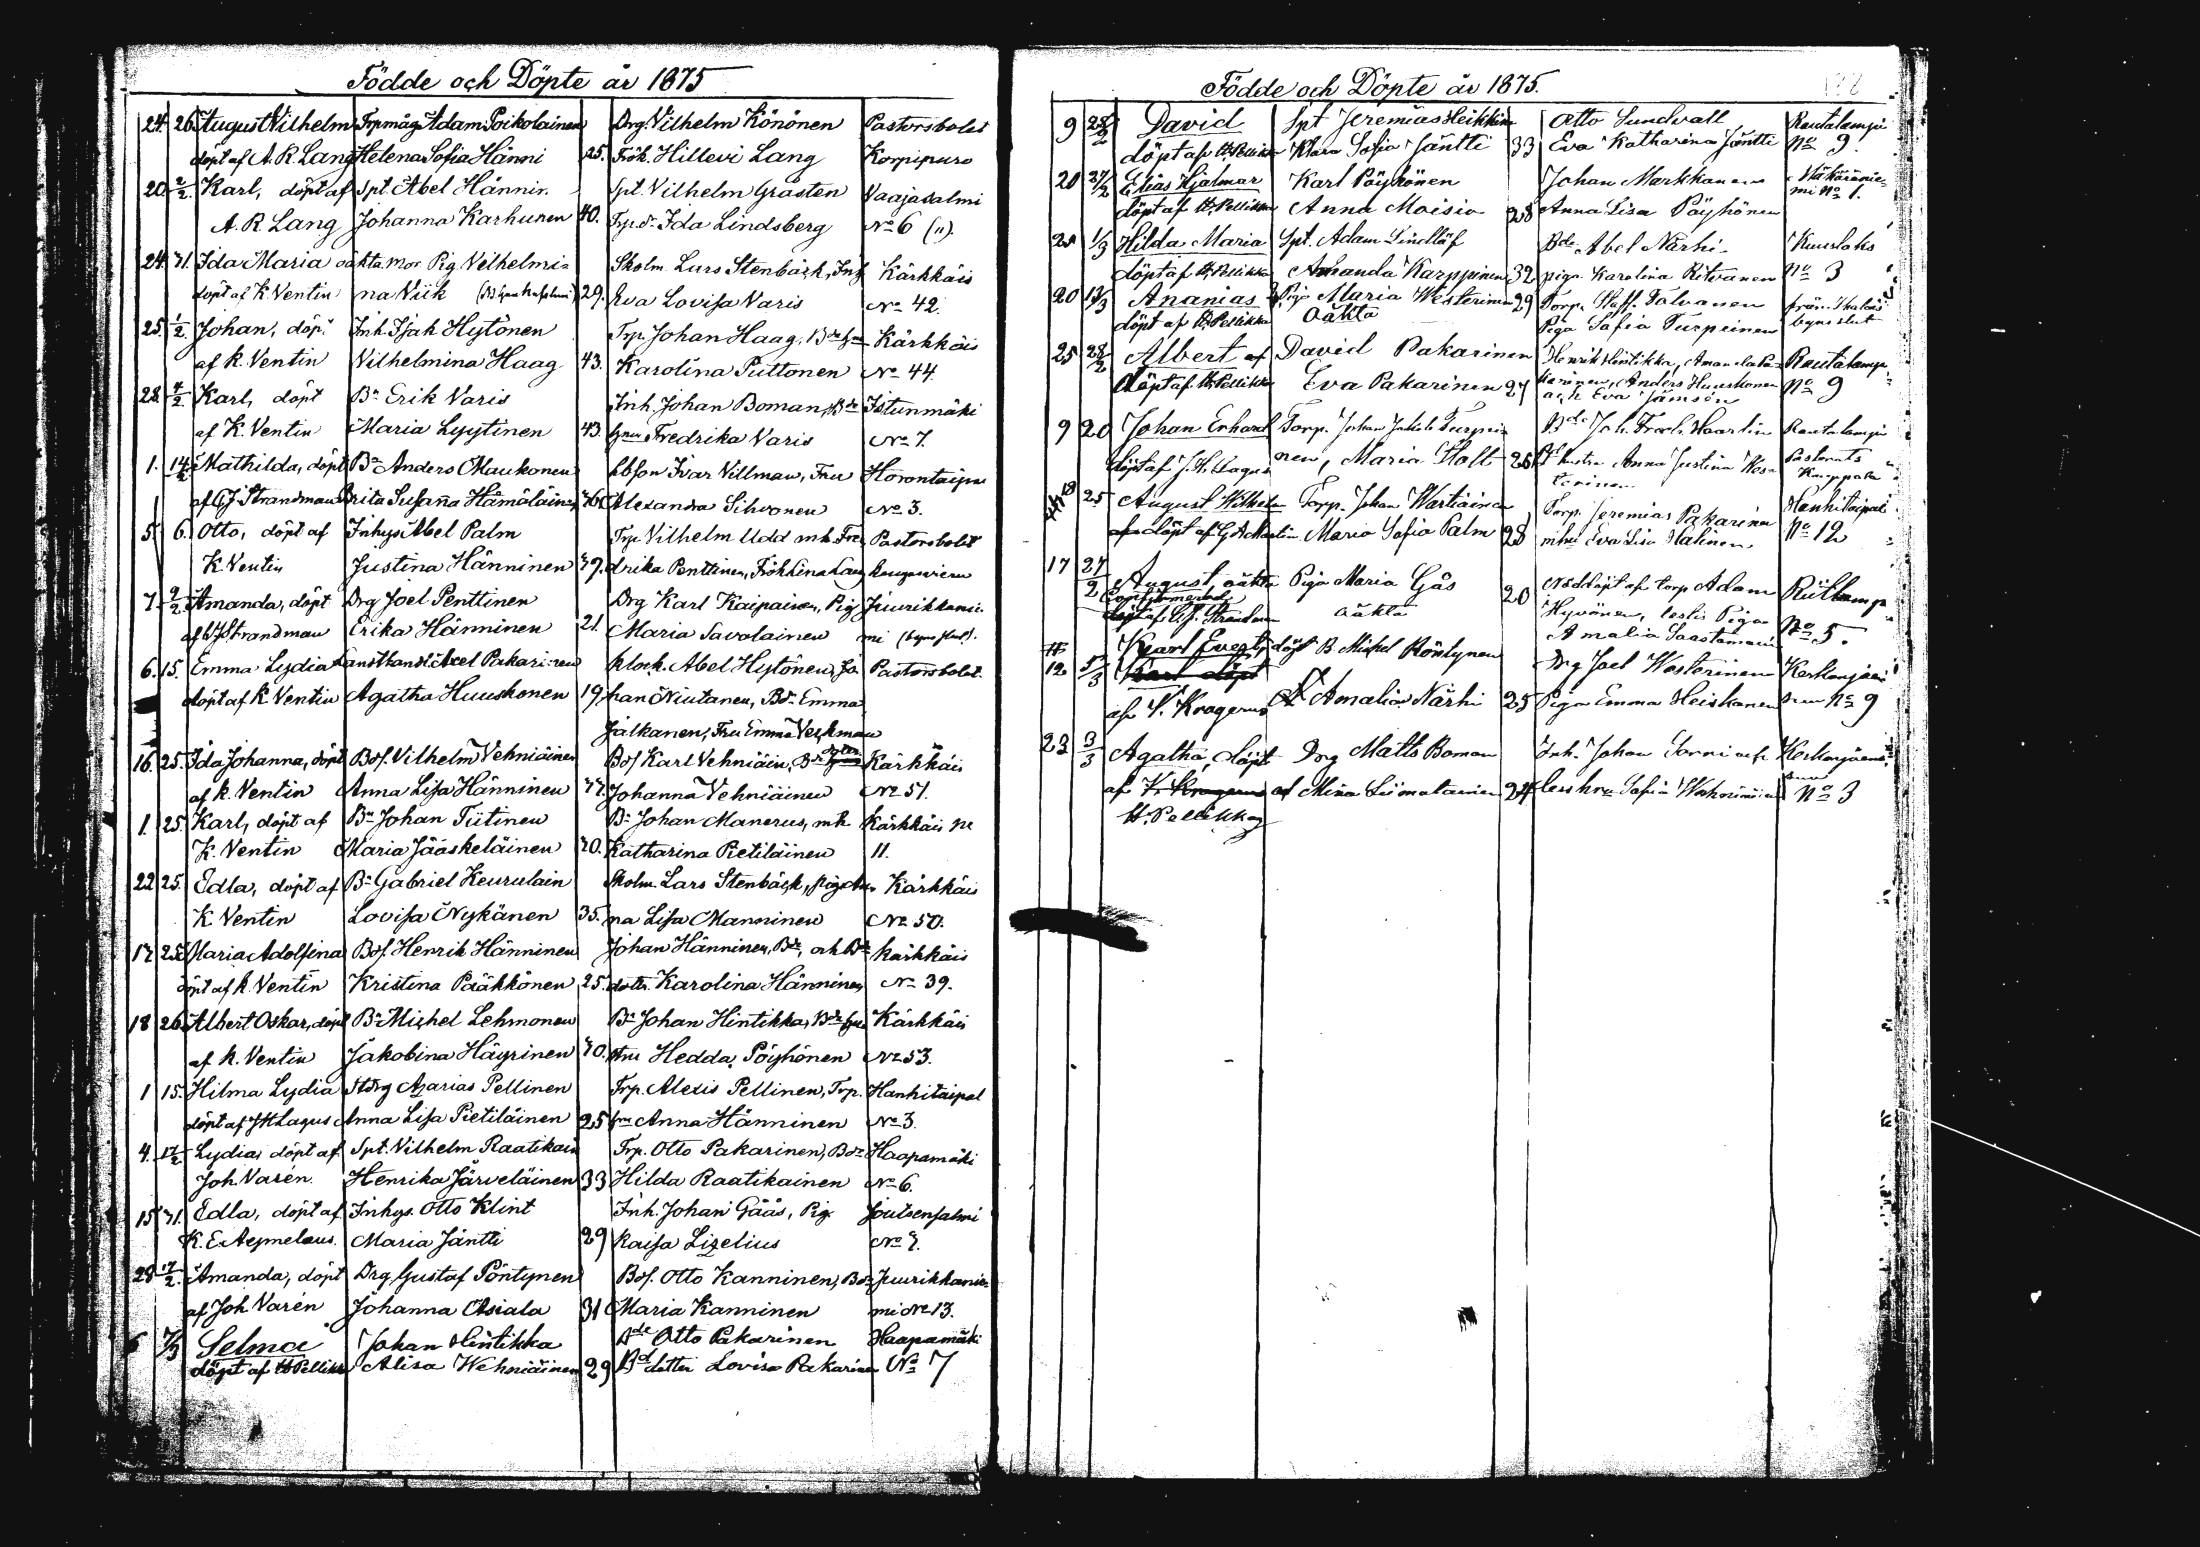 Födde och Döpte år 1875
24. 26. August Vilhelm Trpmåg Adam Poikolainen Drg. Vilhelm Könönen Pastorsbolet
döpt af A. R. Lang Helena Sofia Hänni 25. Frök. Hillevi Lang Korpipuro
20. 2/2. Karl, döpt af Spt. Abel Hännin. Spt. Vilhelm Gråsten Vaajasalmi
A. R. Lang Johanna Karhunen 40. Ida Lindsberg No 6 (").
24. 31. Ida Maria oäkta. Mor Pig. Vilhelmi= Skolm. Lars Stenbäck, Inh Kärkkäis
döpt af K. Ventin na Viik 29. Eva Lovisa Varis No 42.
25. 1/2. Johan, döpt Inh. Isak Hytönen Trp. Johan Haag, Kärkkäis
af K. Ventin Vilhelmina Haag 43. Karolina Puttonen No 44.
28. 4/2. Karl, döpt Bn Erik Varis Inh. Johan Boman, Bde Istunmäki
af K. Ventin Maria Lyytinen 43. Fredrika Varis No 7.
1. 14/2. Mathilda, döpt Bn Anders Maukonen Ivar Villman, Fru Horontaipa
af Strandman Brita Susanna Hämäläinen Alexandra Sihvonen No 3.
5. 6. Otto, döpt af Inhys Abel Palm Trp. Vilhelm Udd m.h. Fre Pastorsbolet
K. Ventin Justina Hänninen 39. drika Penttinen, Frök Lina Lang
7. 9/2. Amanda, döpt Drg Joel Penttinen Drg Karl Kaipainen, Pig Juurikkanie=
af Strandman Erika Hänninen 21. Maria Savolainen mi
6. 15. Emma Lydia Axel Pakarinen klock. Abel Hytönen, Jo Pastorsbolet.
döpt af K. Ventin Agatha Huuskonen 19 han Niutanen, Bdr Emma
Jalkanen, Fru Emma Veckman
16. 25. Ida Johanna, döpt Bos. Vilhelm Vehniäinen Bos Karl Vehniäin, Kärkkäis
af K. Ventin Anna Lisa Hänninen Johanna Vehniäinen No 51.
1. 25. Karl, döpt af Bn Johan Tiitinen Bn Johan Manerus, m.h. Kärkkäis No
K. Ventin Maria Jääskeläinen Katharina Pietiläinen 11.
22 25. Edla, döpt af Bn Gabriel Keurulain Skolm. Lars Stenbäck, Kärkkäis
K. Ventin Lovisa Nykänen 35. na Lisa Manninen No 50.
17. 25. Maria Adolfina Bos. Henrik Hänninen Johan Hänninen, Bde, och Bde Kärkkäis
döpt af K. Ventin Kristina Pääkkönen 25. dottr. Karolina Hänninen No 39.
18 26. Albert Oskar, döpt Bn Michel Lehmonen Bn Johan Hintikka, Kärkkäis
af K. Ventin Jakobina Häyrinen Hedda Pöyhönen No 53.
1 15. Hilma Lydia Azarias Pellinen Trp. Alexis Pellinen, Trp. Hankitaipal
döpt af J H Lagus Anna Lisa Pietiläinen 25 Anna Hänninen No 3.
4. 17/2. Lydia, döpt af Spt. Vilhelm Raatikain Trp. Otto Pakarinen, Bdr Haapamäki
Joh. Varén. Henrika Järveläinen 33 Hilda Raatikainen No 6.
15 31. Edla, döpt af Inhys. Otto Klint Inh. Johan Gäås, Pig. Joutsensalmi
K. E. Aejmelaeus. Maria Jäntti 29 Kaisa Lizelius
28. 17/2. Amanda, döpt Drg. Gustaf Pöntynen Bos. Otto Kanninen, Bdr Juurikkanie=
af Joh. Varén Johanna Asiala 31 Maria Kanninen mi No 13.
6 7/3 Selma Johan Hintikka Bde Otto Pakarinen Haapamäki
döpt af H Pellikka Alisa Wehniäinen 29 Bd dotter Lovisa Pakarinen No 7
Födde och Döpte år 1875.
9 28/2 David Spt Jeremias Heikkin Otto Sundvall Rautalampi
döpt af H. Pellikka Klara Sofia Jäntti 33 Eva Katharina Jäntti No 9
20 27/2 Elias Hjalmar Karl Pöyhönen Johan Markkanen
döpt af H. Pellikka Anna Moisio 28 Anna Lisa Pöyhönen mi No 1.
25 1/3 Hilda Maria Spt. Adam Lindlöf Bde Abel Närhi Kuuslaks
döpt af H. Pellikka Amanda Karppinen 32 piga Karolina Ritvanen No 3
20 13/3 Ananias Piga Maria Westerinen 29 Torp. Staff. Tolvanen
döpt af H. Pellikka Oäkta Piga Sofia Turpeinen
25 28/2 Albert af David Pakarinen Henrik Hintikka, Amanda Pa= Rautalampi
döpt af H. Pellikka Eva Pakarinen 27 karinen, Anders Huuskonen No 9
och Eva Jämsén
9 20 Johan Erhard Torp. Johan Jakob Turpei= Bde Joh. Fredr. Haarlin Rautalampi
döpt af J. H. Lagus nen, Maria Holt 26 hustru Anna Justina Pastorats
25 August Wilhelm Torp. Johan Wartiainen Torp. Jeremias Pakarinen Hankitaipale
döpt af G A Martin Maria Sofia Palm 28 m hu Eva Lisa Halinen No 12
17 27/2 August, oäkta Piga Maria Gås 20 Nöddöpt af torp Adam
döpt af C. J. Strandman oäkta Hyvönen, testis Piga No 5.
Amalia Saastamoin
12 5/3 Karl Evert, döpt B. Michel Röntynen Drg Joel Westerinen
Karl döpt
af V. Krogerus Amalia Närhi 25 Piga Emma Heiskanen No 9
23 3/3 Agatha, döpt Drg Matts Boman Inh. Johan
af K. Krogerus af Mina Liimatainen 24 Sofia No 3
H. Pellikka